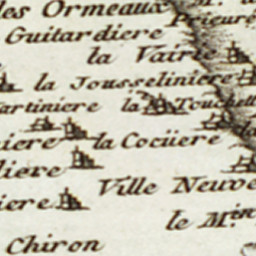 les Ormeaux
Prieuré
Guitardiere
la Vairie
la Jousseliniere
artiniere la Touchett
iere la Cocüere la
liere
Ville Neuve
iere
le M.in
Chiron